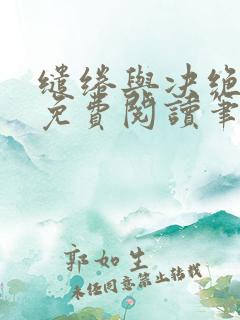 缱绻與决绝
免費閱讀筆
郭如生
未经同意禁止转载